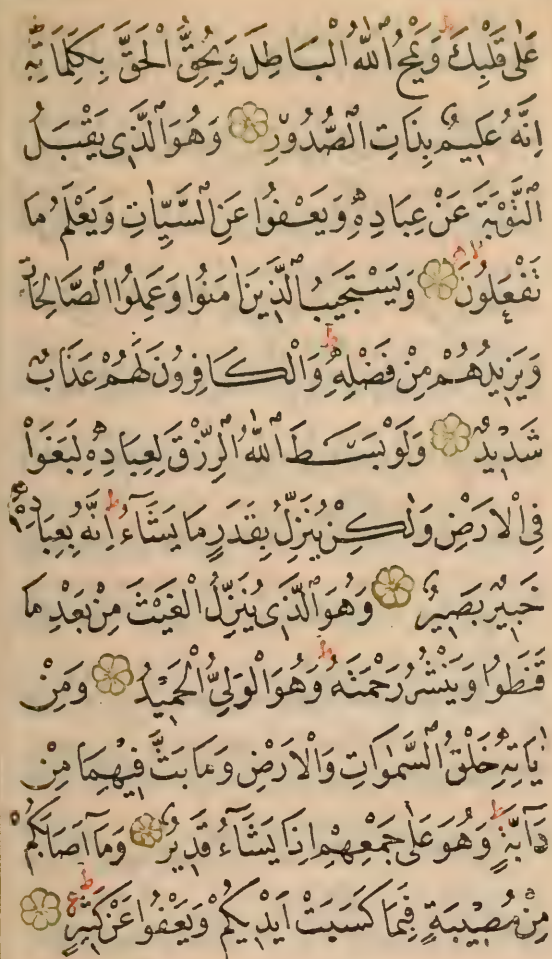 عَلٰى قَلْبِكَ وَيَمْحُ اللّٰهُ الْبَاطِلَ وَيُحِقُّ الْحَقَّ بِكَلِمَاتِهِ
اِنَّهُ عَلِيمٌ بِذَاتِ الصُّدُورِ وَهُوَ الَّذِى يَقْبَلُ
التَّوْبَةَ عَنْ عِبَادِهِ وَيَعْفُوا عَنِ السَّيِّاٰتِ وَيَعْلَمُ مَا
تَفْعَلُونَ وَيَسْتَجِيبُ الَّذِينَ اٰمَنُوا وَعَمِلُوا الصَّالِحَاتِ
وَيَزِيدُهُمْ مِنْ فَضْلِهِ وَالْكَافِرُونَ لَهُمْ عَذَابٌ
شَدِيدٌ وَلَوْ بَسَطَ اللّٰهُ الرِّزْقَ لِعِبَادِهِ لَبَغَوْا
فِى الْاَرْضِ وَلٰكِنْ يُنَزِّلُ بِقَدَرٍ مَا يَشَٓاءُ اِنَّهُ بِعِبَادِهِ
خَبِيرٌ بَصِيرٌ وَهُوَ الَّذِى يُنَزِّلُ الْغَيْثَ مِنْ بَعْدِ مَا
قَنَطُوا وَيَنْشُرُ رَحْمَتَهُ وَهُوَ الْوَلِىُّ الْحَمِيدُ وَمِنْ
اٰيَاتِهِ خَلْقُ السَّمٰوَاتِ وَالْاَرْضِ وَمَا بَثَّ فِيهِمَا مِنْ
دَٓابَّةٍ وَهُوَ عَلٰى جَمْعِهِمْ اِذَا يَشَٓاءُ قَدِيرٌ وَمَٓا اَصَابَكُمْ
مِنْ مُصِيبَةٍ فَبِمَا كَسَبَتْ اَيْدِيكُمْ وَيَعْفُوا عَنْ كَثِيرٍ